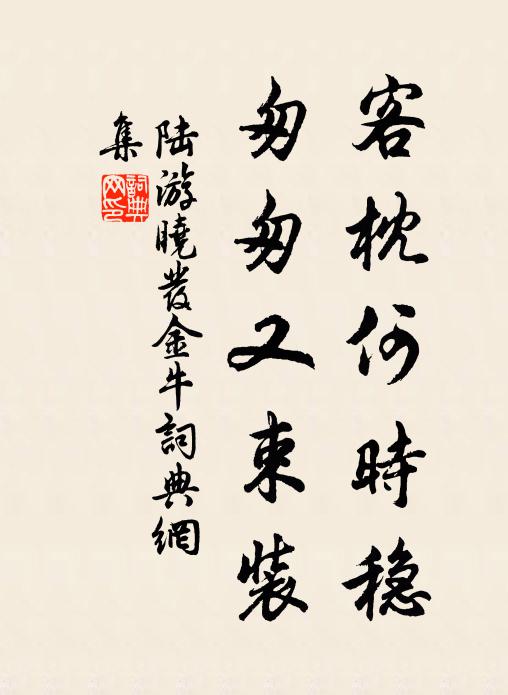 客枕何時穏
匆匆又束裝
陸游曉發金牛詞典網
集
詞典網印